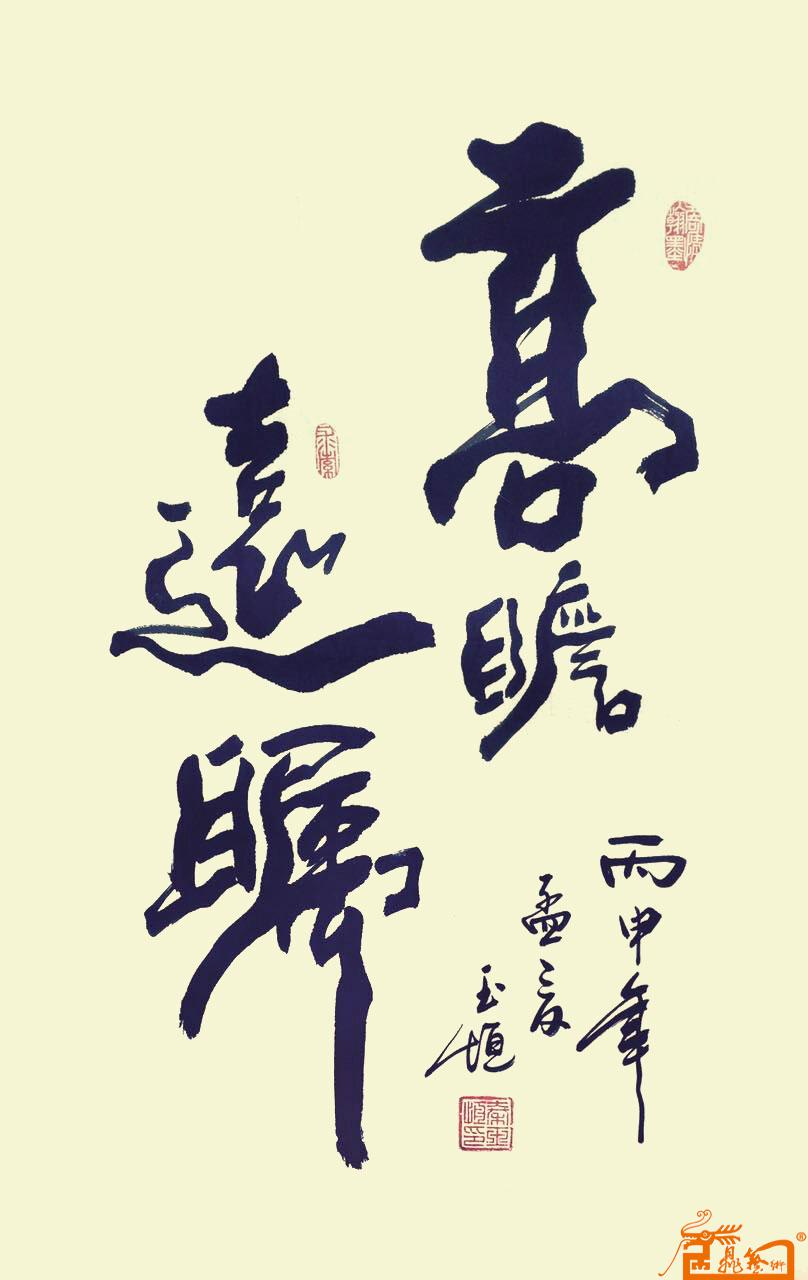 高瞻
遠矚
丙申年
孟夏
玉垣